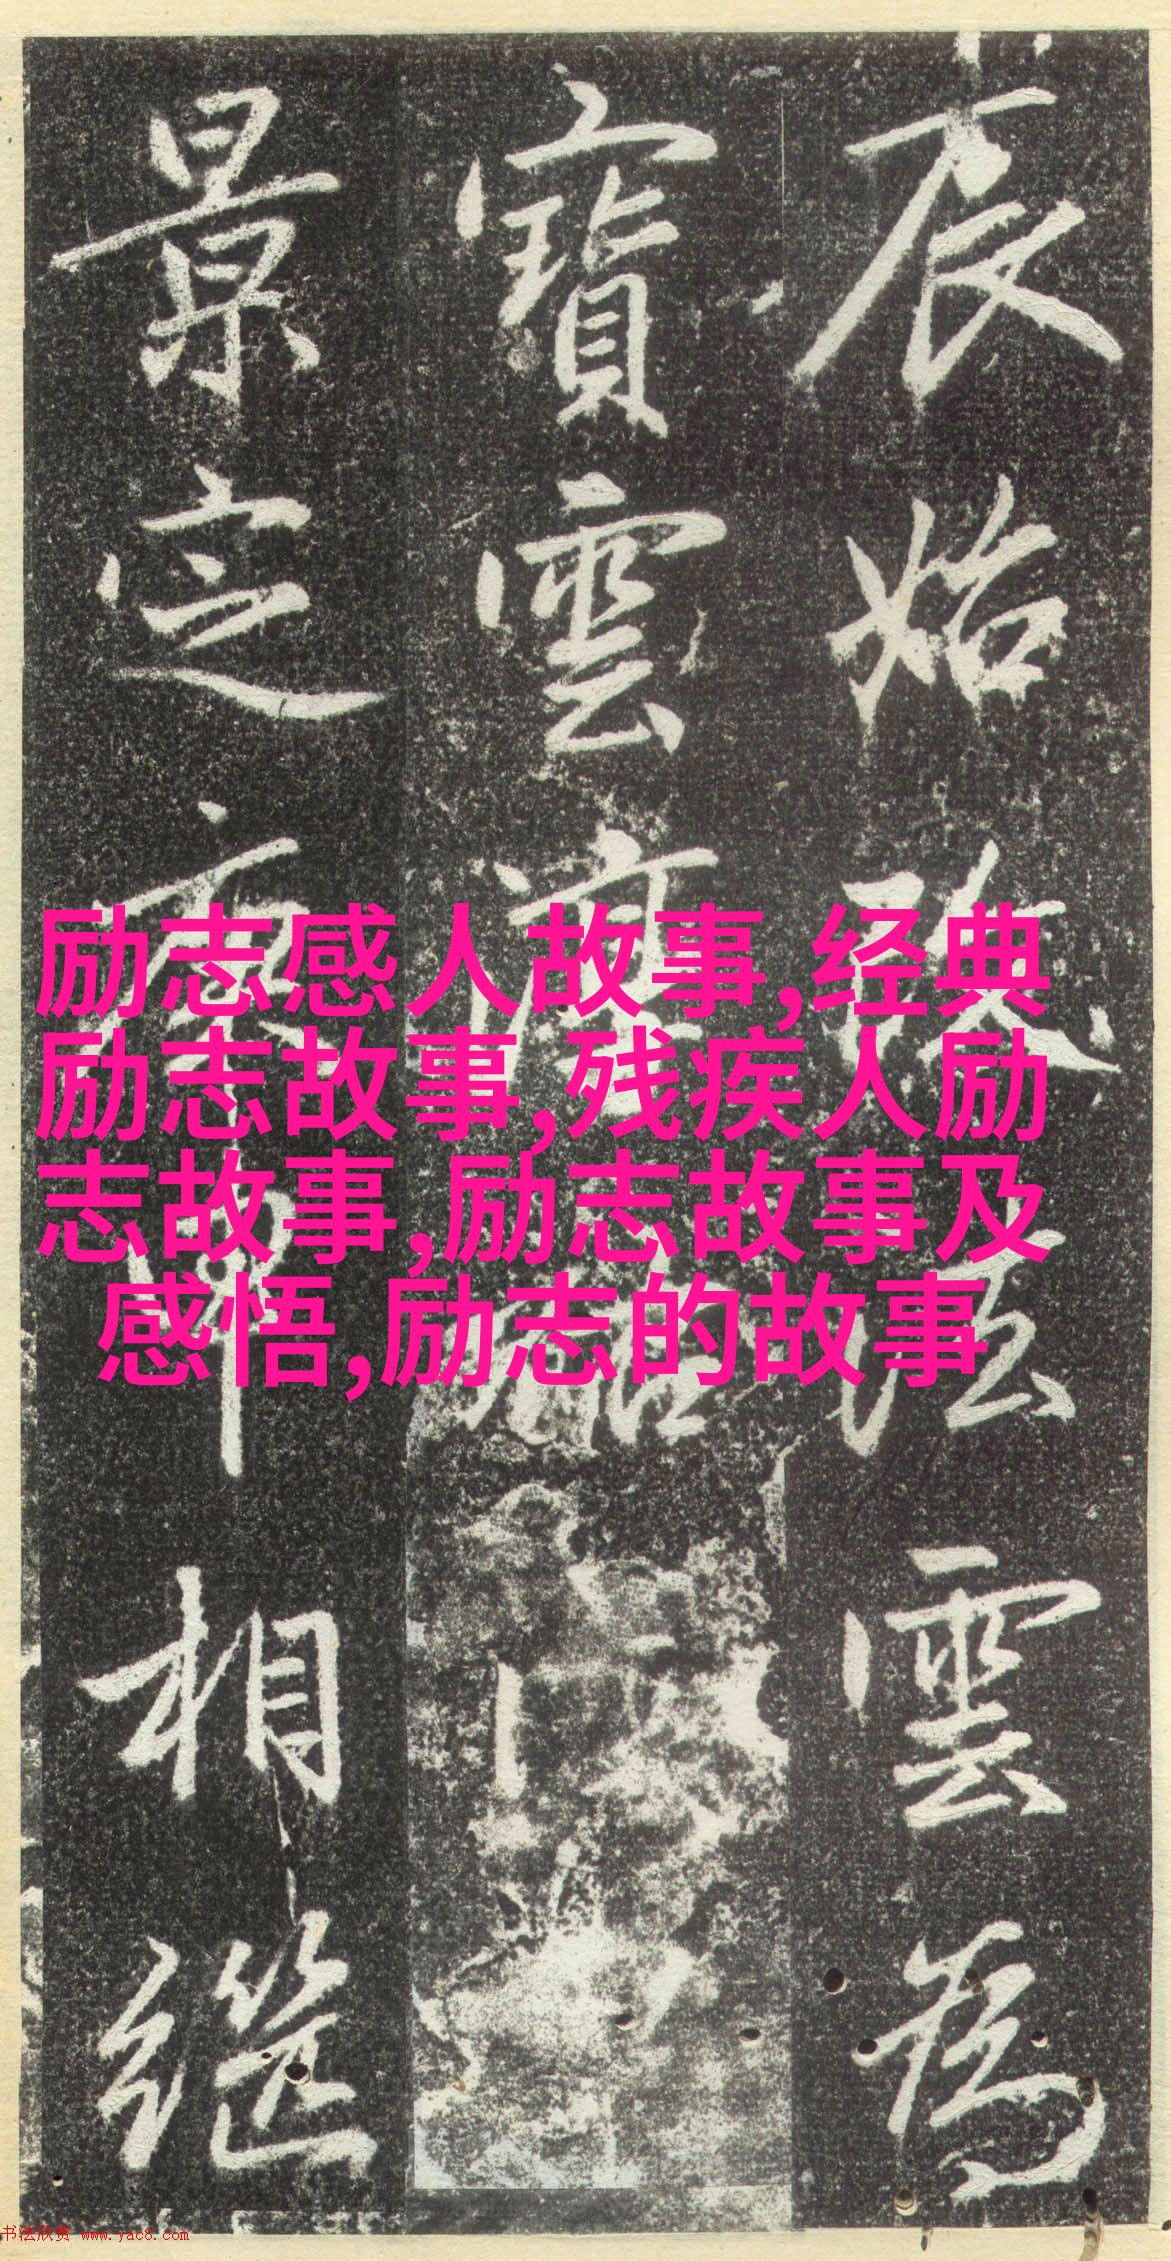 辰始改法雲為
寶雲
景定相繼
励志感人故事,经典
励志故事,残疾人励
志故事,励志故事及
感悟,励志的故事
书法欣赏 www.yac8.com